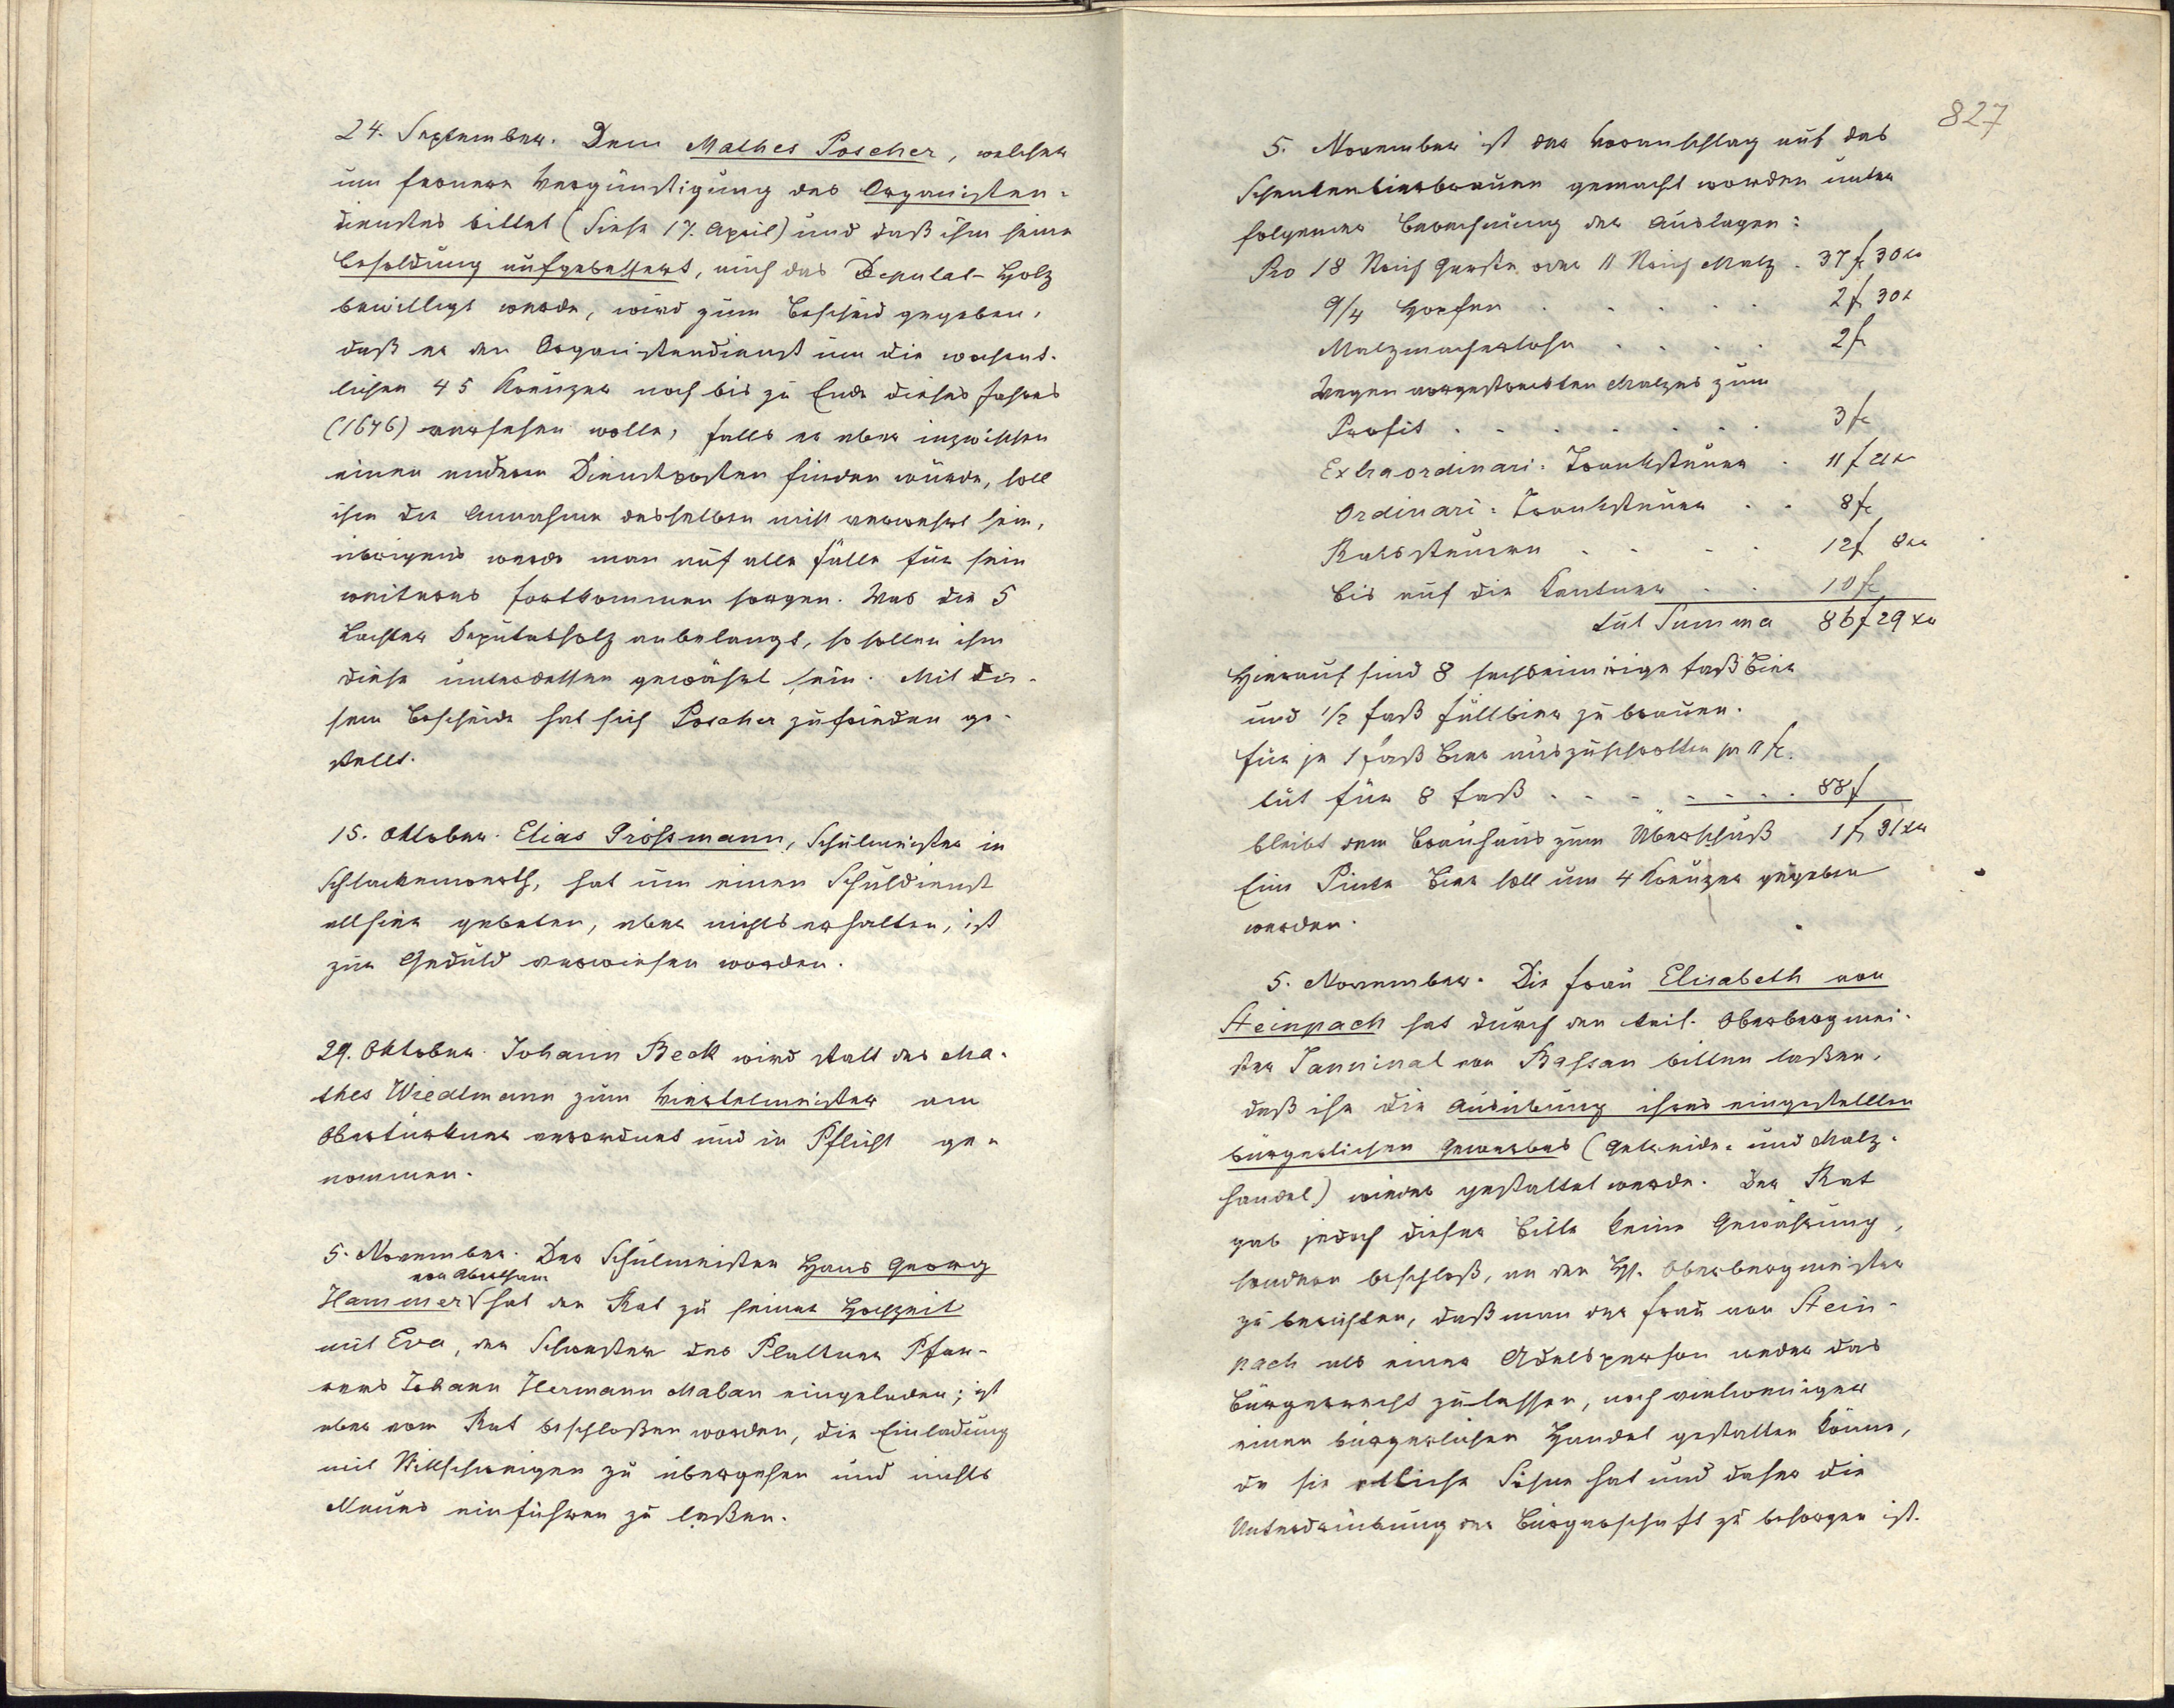 24. September. Dem Mathes Poscher, welcher
um fernere Vergünstigung des Organisten-
dienstes bittet (Siehe 17. April) und daß ihm seine
Besoldung aufgebessert, auch das Deputat-Holz
bewilligt werde, wird zum Bescheid gegeben,
daß er den Organistendienst um die wochent-
lichen 45 Kreuzer noch bis zu Ende dieses Jahres
(1676) versehen wolle, falls er aber inzwischen
einen anderen Dienstposten finden würde, soll
ihm die Annahme desselben nit verwehrt sein,
übrigens werde man auf alle Fälle für sein
weiteres Fortkommen sorgen. Was die 5
Lachter Deputatholz anbelangt, so sollen ihm
diese unterdessen gewährt sein. Mit die-
sem Bescheide hat sich Poscher zufrieden ge-
stellt.
15. Oktober. Elias Grössmann, Schulmeister in
Schlackenwerth, hat um einen Schuldienst
allhier gebeten, aber nichts erhalten, ist
zur Geduld verwiesen worden.
29. Oktober. Johann Beck wird statt des Ma-
thes Wiedlmann zum Viertelmeister am
Obertürkner verordnet und in Pflicht ge-
nommen.
5. November. Der Schulmeister Hans Georg
von Abertham
Hammer hat den Rat zu seiner Hochzeit
mit Eva, der Schwester des Plattner Pfar-
rers Johann Hermann Malan eingeladen; ist
aber vom Rat beschloßen worden, die Einladung
mit Stillschweigen zu übergehen und nichts
Neues einführen zu laßen.
827
5. November ist der Voranschlag auf das
Schenkenbierbrauen gemacht worden unter
folgender Berechnung der Auslagen:
Pro 18 Strich Gerste oder 11 Strich Malz . 37 f 30 xr
9/4 Hopfen . . . . . 2 f 30 x
Malzmacherlohn . . . . 2 f
Wegen vorgestreckten Malzes zum
Profit . . . . . . . 3 f
Extraordinari- Tranksteuer . 11 f 21 x
Ordinari- Tranksteuer . . 8 f
Ratssteuern . . . . 12 f 8 xr
Bis auf die Kantner . . 10 f
tut Summa 86 f 29 xr
Hierauf sind 8 sechseimrige Faß Bier
und 1/2 Faß Füllbier zu brauen.
Für je 1 Faß Bier auszuschrotten pr 11 f.
tut für 8 Faß . . . . . . . . 88 f
bleibt dem Brauhaus zum Überschuß 1 f 31 xr
Eine Pinte Bier soll um 4 Kreuzer gegeben
werden.
5. November. Die Frau Elisabeth von
Steinpach hat durch den keis. Oberbergmei-
ster von bitten laßen,
daß ihr die Ausübung ihres eingestellten
bürgerlichen Gewerbes (Getreide- und Malz-
handel) wieder gestattet werde. Der Rat
gab jedoch dieser Bitte keine Gewährung,
sondern beschloß, an den H. Oberbergmeister
zu berichten, daß man der Frau von Stein-
pach als einer Adelsperson weder das
Bürgerrecht zulassen, noch vielweniger
einen bürgerlichen Handel gestatten könne,
da sie etliche Söhne hat und daher die
Unterdrückung der Bürgerschaft zu besorgen ist.